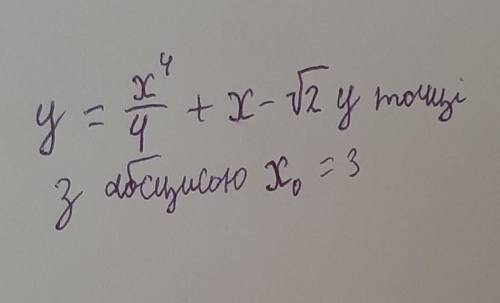 y = x⁴/4 + x - √2 у точці
з абсцисою x₀ = 3